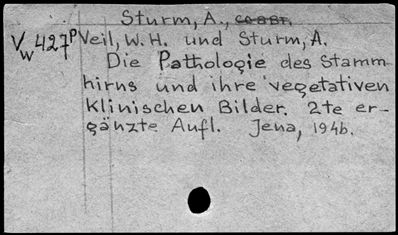 Sturm, A., соавт.
Vw427P Veil, W. H. und Sturm, A.
Die Pathologie des Stamm-
hirns und ihre vegetativen
klinischen Bilder. 2te er-
gänzte Aufl. Jena, 1946.